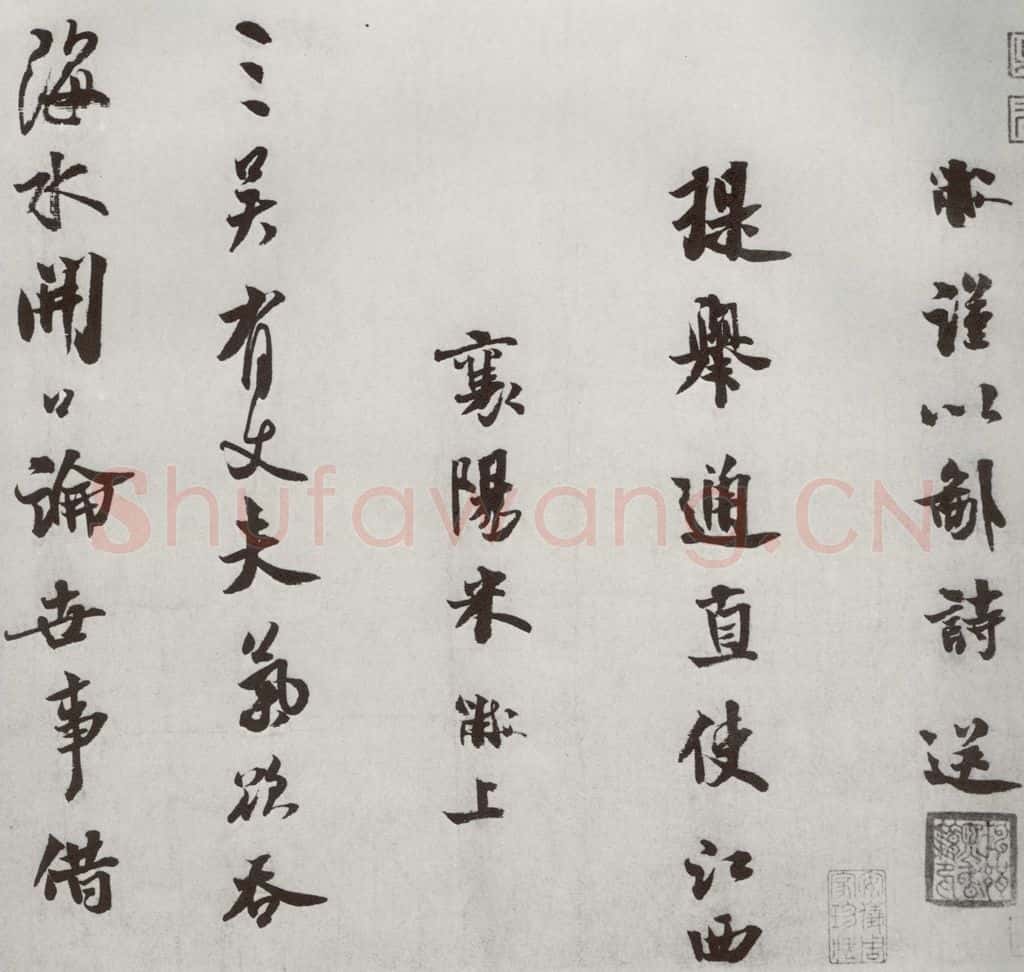 黻謹以鄙詩送
提舉通直使江西
襄陽米黻上
三吳有丈夫氣欲吞
海水開口論世事借
安儀周家珍藏
Shufawang.CN